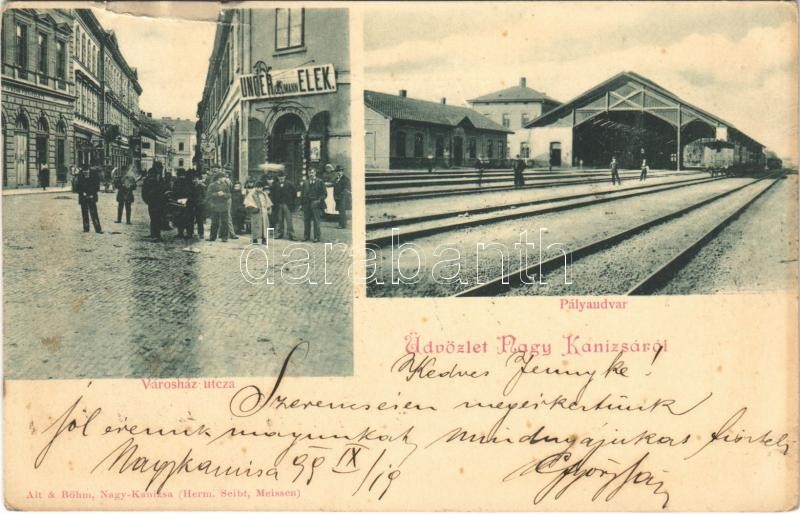 UNGER ULLMANN ELEK
darabanth
Pályaudvar
Üdvözlet Nagy Kanizsáról
Városház utcza
Kedves Jennyke!
Szerencsésen megérkeztünk
jól érezzük magunkat, mindnyájukat tiszteli
Nagykanizsa 99 IX/19
Alt & Böhm, Nagy-Kanizsa (Herm. Seibt, Meissen)